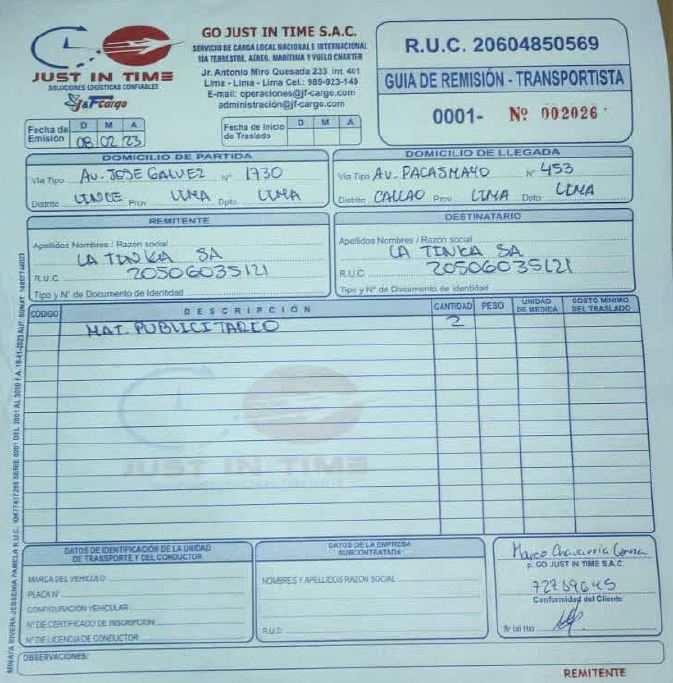 JUST IN TIME
SOLUCIONES LOGÍSTICAS CONFIABLES
J&F cargo
GO JUST IN TIME S.A.C.
SERVICIO DE CARGA LOCAL NACIONAL E INTERNACIONAL
VÍA TERRESTRE, AÉREO, MARÍTIMA Y VUELO CHARTER
Jr. Antonio Miro Quesada 233 Int. 401
Lima - Lima - Lima Cel.: 989-923-149
E-mail: operaciones@jf-cargo.com
administración@jf-cargo.com
R.U.C. 20604850569
GUIA DE REMISIÓN - TRANSPORTISTA
0001- Nº 002026
Fecha de Emisión D M A
08 02 23
Fecha de Inicio de Traslado D M A
DOMICILIO DE PARTIDA
Vía Tipo AV. JOSE GALVEZ Nº 1730
Distrito LINCE Prov LIMA Dpto. LIMA
DOMICILIO DE LLEGADA
Vía Tipo AV. PACASMAYO Nº 453
Distrito CALLAO Prov LIMA Dpto. LIMA
REMITENTE
Apellidos Nombres / Razón social
LA TINKA SA
R.U.C. 20506035121
Tipo y Nº de Documento de Identidad
DESTINATARIO
Apellidos Nombres / Razón social
LA TINKA SA
R.U.C. 20506035121
Tipo y Nº de Documento de Identidad
CÓDIGO DESCRIPCIÓN CANTIDAD PESO UNIDAD DE MEDIDA COSTO MÍNIMO DEL TRASLADO
MAT. PUBLICITARIO 2
JUST IN TIME
SOLUCIONES LOGÍSTICAS CONFIABLES
DATOS DE IDENTIFICACIÓN DE LA UNIDAD
DE TRANSPORTE Y DEL CONDUCTOR
MARCA DEL VEHICULO
PLACA Nº
CONFIGURACIÓN VEHICULAR
Nº DE CERTIFICADO DE INSCRIPCIÓN
Nº DE LICENCIA DE CONDUCTOR
DATOS DE LA EMPRESA
SUBCONTRATADA
NOMBRES Y APELLIDOS RAZON SOCIAL
R.U.C.
Marco Chavarria
p. GO JUST IN TIME S.A.C.
72769645
Conformidad del Cliente
Sr (a) (ta)
OBSERVACIONES:
REMITENTE